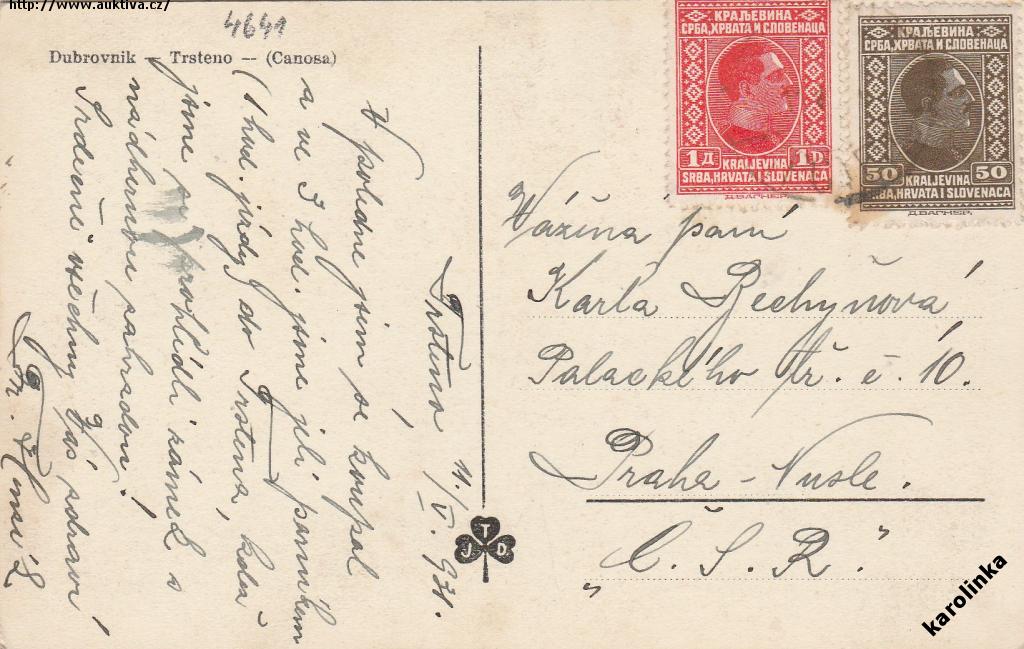 http://www.auktiva.cz/
4641
Dubrovnik — Trsteno — (Canosa)
Trsteno 14./V. 931.
V poledne jsem se koupal
a ve 3 hod. jsme jeli parníkem
(1 hod. jízdy) do Trstena, kde
jsme si prohlédli zámek s
nádhernou zahradou!
Srdečně všechny Vás zdraví
КРАЉЕВИНА
СРБА, ХРВАТА И СЛОВЕНАЦА
1Д 1D
KRALJEVINA
SRBA, HRVATA I SLOVENACA
Д.ВАГНЕР.
КРАЉЕВИНА
СРБА, ХРВАТА И СЛОВЕНАЦА
50 50
KRALJEVINA
SRBA, HRVATA I SLOVENACA
Д.ВАГНЕР.
Vážená paní
Karla Bechyňová
Palackého tř. č. 10.
Praha - Nusle.
„Č. S. R."
J T D
karolinka